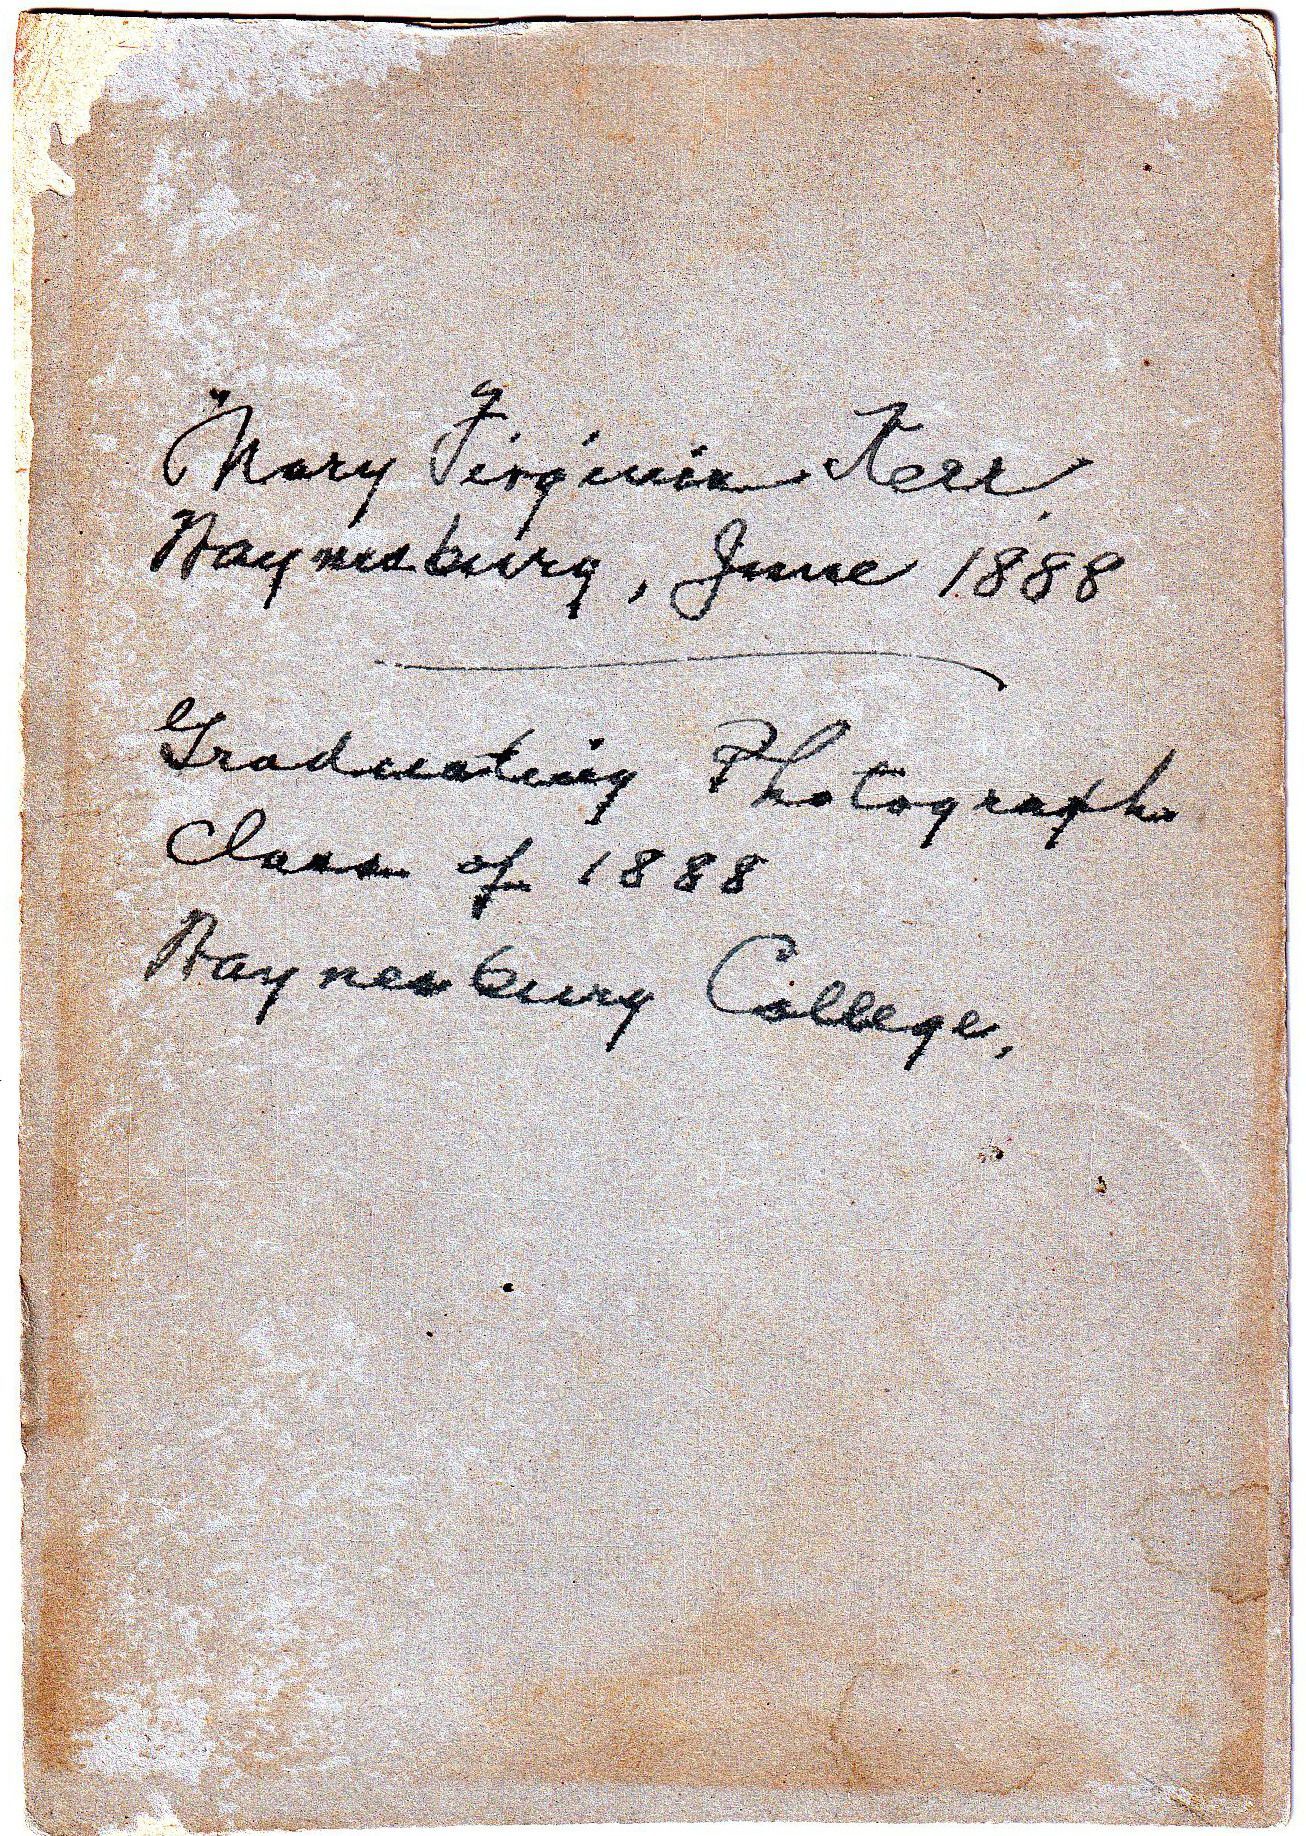 Mary Virginia Kerr
Waynesburg, June 1888
Graduating Photograph
Class of 1888
Waynesburg College,